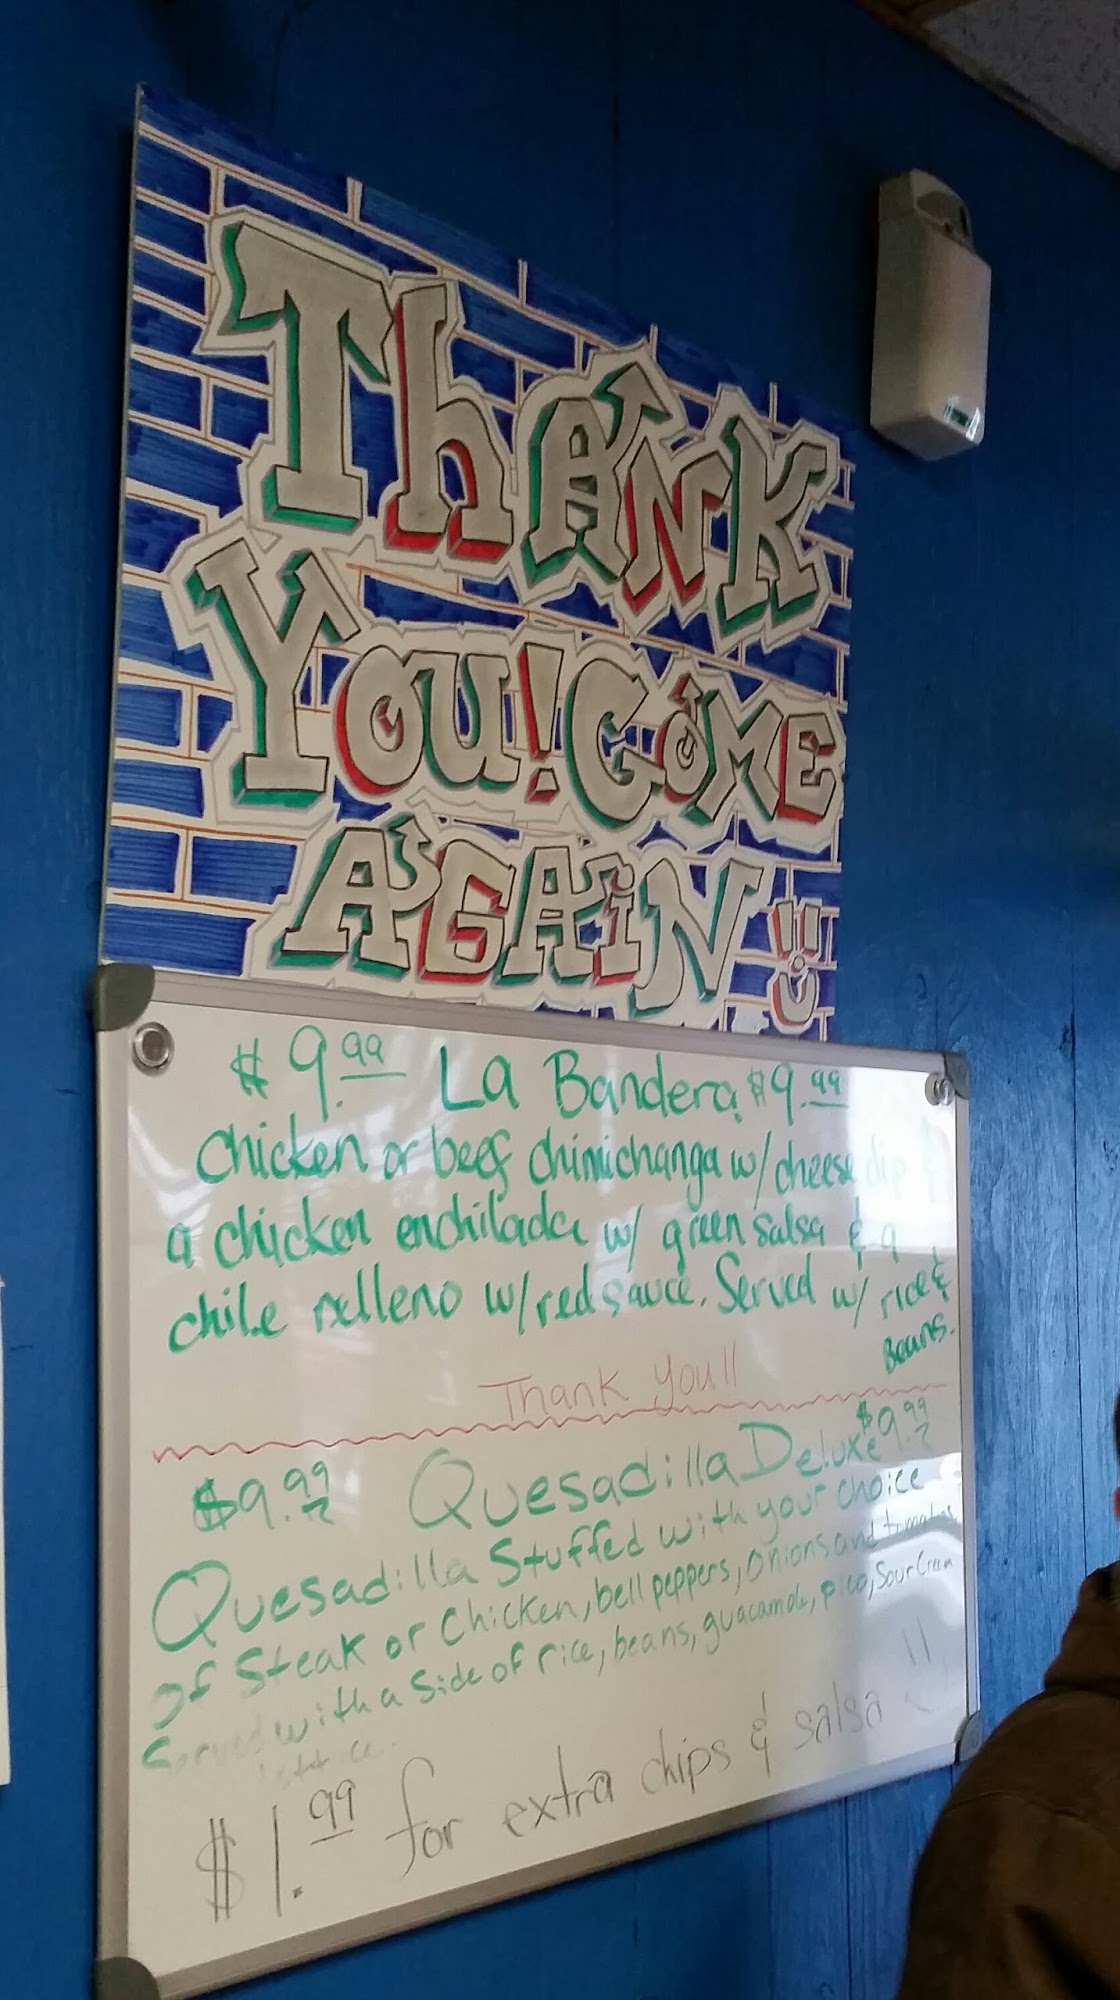 Thank
You! Come
Again
$9.99 La Bandera $9.99
Chicken or beef chimichanga w/ cheese dip &
a chicken enchilada w/ green salsa & a
chile relleno w/ red sauce. Served w/ rice &
Beans.
Thank you!!
$9.99 Quesadilla Deluxe $9.99
Quesadilla Stuffed with your choice
of Steak or Chicken, bell peppers, Onions and tomatoes.
Served with a side of rice, beans, guacamole, pico, Sour Cream
lettuce.
$1.99 for extra chips & salsa